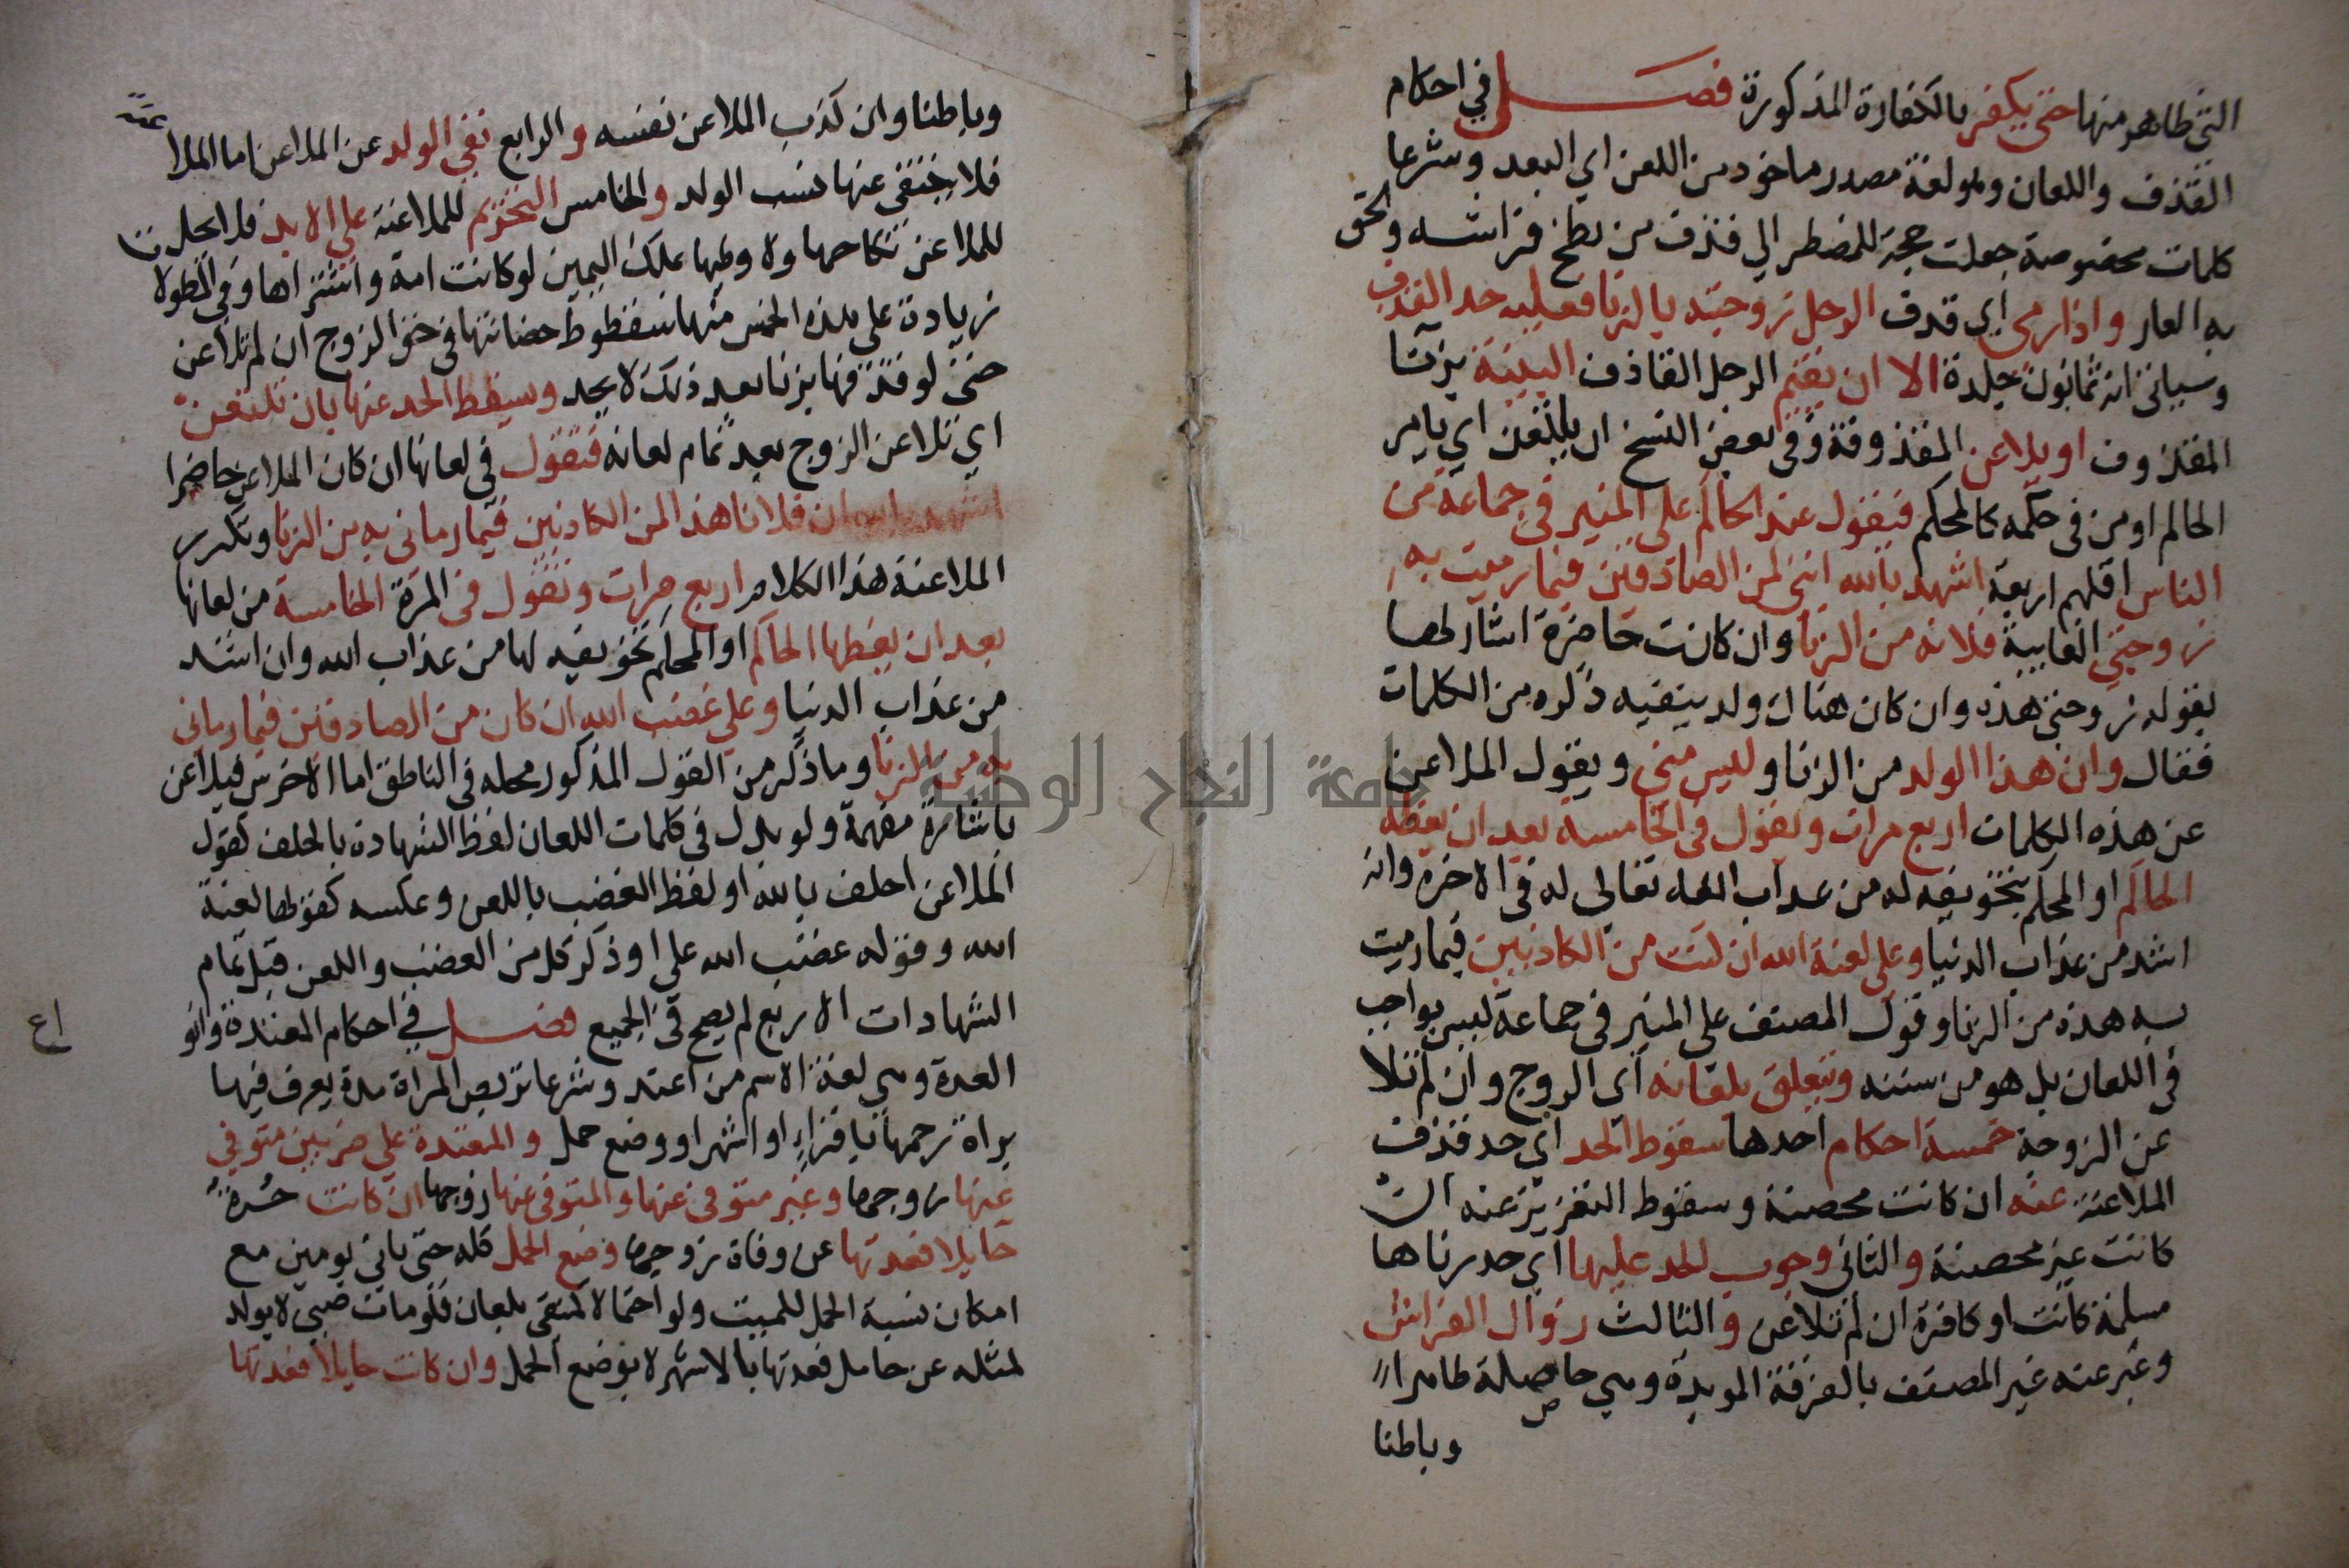 التي ظاهر منها حتى يكفر بالكفارة المذكورة فصل في احكام
القذف واللعان وهو لغة مصدر ماخوذ من اللعن اي البعد وشرعا
كلمات مخصوصة جعلت حجة للمضطر الي قذف من لطخ فراشه والحق
به العار واذا رمى اي قذف الرجل زوجته بالزنا فعليه حد القذف
وسياتى انه ثمانون جلدة الا ان يقيم الرجل القاذف البينة بزنا
المقذوف او يلاعن المقذوفة وفى بعض النسخ او يلتعن اي يامر
الحاكم او من فى حكمه كالمحكم فيقول عند الحاكم على المنبر فى جماعة من
الناس اقلهم اربعة اشهد بالله اننى لمن الصادقين فيما رميت به
زوجتي الغايبة فلانه من الزنا وان كانت حاضرة اشار لها
بقوله زوجتى هذه وان كان هناك ولد ينفيه ذكره من الكلمات
فقال وان هذا الولد من الزنا وليس مني ويقول الملاعن
عن هذه الكلمات اربع مرات ويقول فى الخامسة بعد ان يعظه
الحاكم او المحكم بتخويفه له من عذاب الله تعالى له فى الاخرة وانه
اشد من عذاب الدنيا وعلي لعنة الله ان كنت من الكاذبين فيما رميت
به هذه من الزنا وقول المصنف على المنبر فى جماعة ليس بواجب
فى اللعان بل هو من سننه ويتعلق بلعانه اى الزوج وان لم تلا
عن الزوجة خمسة احكام احدها سقوط الحد اى حد قذف
الملاعنة عنه ان كانت محصنة وسقوط التعزيز عنه ان
كانت غير محصنة والثانى وجوب الحد عليها اى حد زناها
مسلمة كانت او كافرة ان لم تلاعن والثالث زوال الفراش
وعبر عنه غير المصنف بالفرقة الموبدة وهي حاصلة ظاهرا
وباطنا
وباطنا وان كذب الملاعن نفسه والرابع نفي الولد عن الملاعن اما الملا
عنة
فلا ينتفي عنها نسب الولد والخامس التحريم للملاعنة على الابد فلا تحل
للملاعن نكاحها ولا وطيها بملك اليمين لو كانت امة واشتراها وفى المطولات
زيادة على هذه الخمس منها سقوط حضانتها فى حق الزوج ان لم تلاعن
حتى لو قذفها بزنا بعد ذلك لا يحد ويسقط الحد عنها بان تلتعن
اي تلاعن الزوج بعد تمام لعانه فتقول فى لعانها ان كان الملاعن حاضرا
اشهد بالله ان فلانا هذا لمن الكاذبين فيما رمانى به من الزنا وتكرر
الملاعنة هذا الكلام اربع مرات وتقول فى المرة الخامسة من لعانها
بعد ان يعظها الحاكم او المحكم بتخويفه لها من عذاب الله وان اشد
من عذاب الدنيا وعلي غضب الله ان كان من الصادقين فيما رمانى
به من الزنا وما ذكر من القول المذكور محله فى الناطق اما الاخرس فيلاعن
باشارة مفهمة ولو بدل فى كلمات اللعان لفظ الشهادة بالحلف كقول
الملاعن احلف بالله او لفظ الغضب باللعن وعكسه كقولها لعنة
الله وقوله غضب الله علي او ذكر كل من الغضب واللعن قبل تمام
الشهادات الاربع لم يصح فى الجميع فصل في احكام المعتدة وانو
اع
العدة وهي لغة الاسم من اعتد وشرعا تربص المراة مدة يعرف فيها
براة رحمها باقراء او اشهر او وضع حمل والمعتدة علي ضربين متوفى
عنها زوجها وغير متوفى عنها والمتوفى عنها زوجها ان كانت حرة
حايلا فعدتها عن وفاة زوجها وضع الحمل كله حتى ثانى تومين مع
امكان نسبة الحمل للميت ولو احتمالا كمنفى بلعان فلو مات صبى لا يولد
لمثله عن حامل فعدتها بالاشهر لا بوضع الحمل وان كانت حايلا فعدتها
جامعة النجاح الوطنية